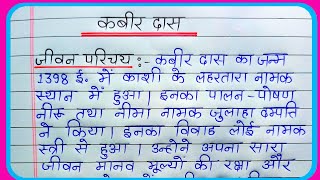 कबीर दास
जीवन परिचय :- कबीर दास का जन्म
1398 ई. में काशी के लहरतारा नामक
स्थान में हुआ। इनका पालन-पोषण
नीरू तथा नीमा नामक जुलाहा दम्पति
ने किया। इनका विवाह लोई नामक
स्त्री से हुआ। उन्होने अपना सारा
जीवन मानव मूल्यों की रक्षा और